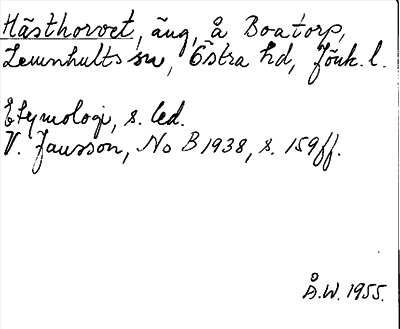 Hästhorvet, äng, å Boatorp,
Lemnhults sn, Östra hd, Jönk. l.
Etymologi, s. led.
V. Jansson, NoB 1938, s. 159ff.
Å.W. 1955.